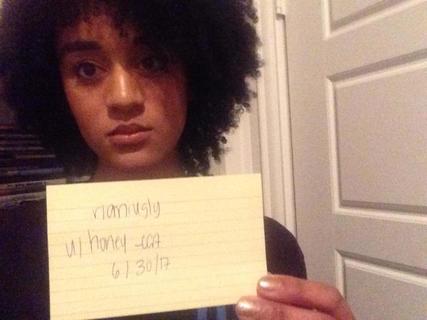 r/amiugly
u/honey-cat
6/30/17